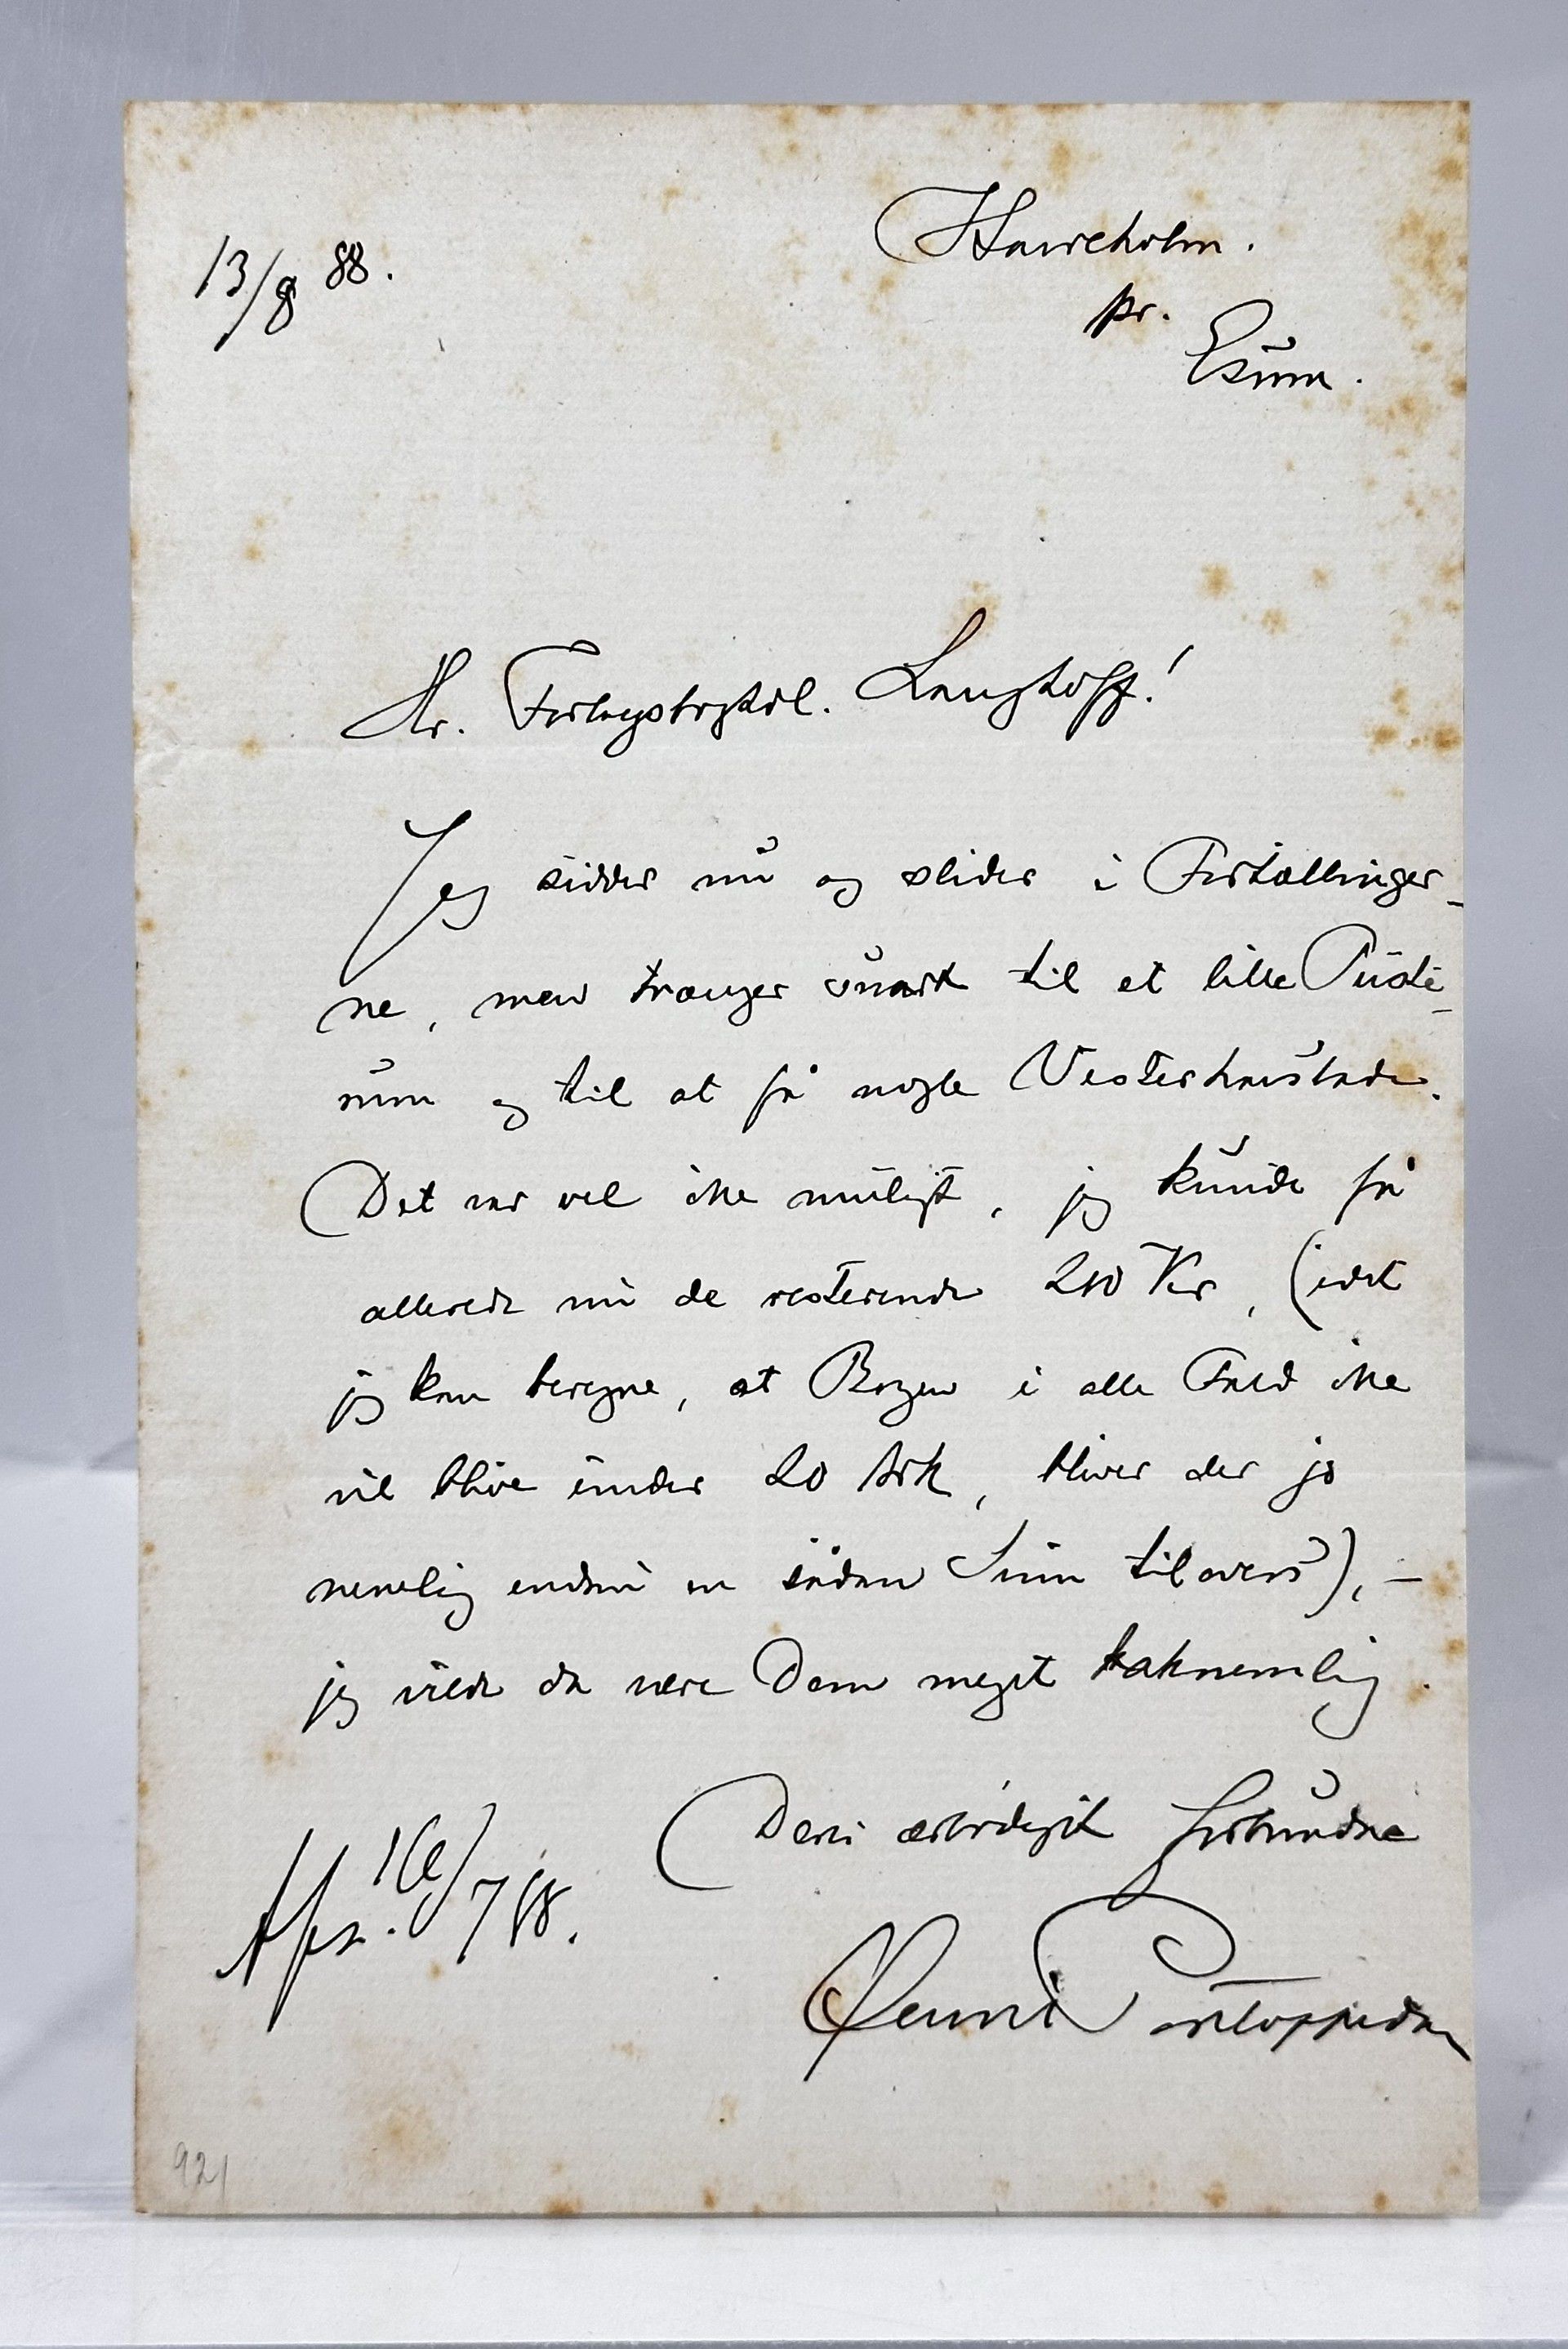 13/8 88.
Havreholm.
pr.
Esrum.
Hr. Forlagsboghdl. Langhoff!
Jeg sidder nu og slider i Fortællinger-
ne, men trænger snart til et lille Puste-
rum og til at få nogle Vesterhavsbade.
Det var vel ikke muligt, jeg kunde få
allerede nu de resterende 200 Kr, (idet
jeg kan beregne, at Bogen i alle Fald ikke
vil blive under 20 Ark, bliver der jo
nemlig endnu en sådan Sum tilovers), –
jeg vilde da være Dem meget taknemlig.
Deres ærbødigst forbundne
Henrik Pontoppidan
88.
921